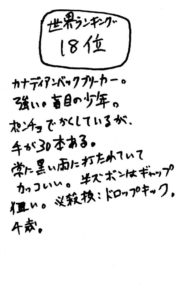 世界ランキング
18位
カナディアンバックブリーカー。
強い。盲目の少年。
ポンチョでかくしているが、
手が30本ある。
常に黒い雨に打たれていて
カッコいい。半ズボンはギャップ
狙い。必殺技：ドロップキック。
4歳。